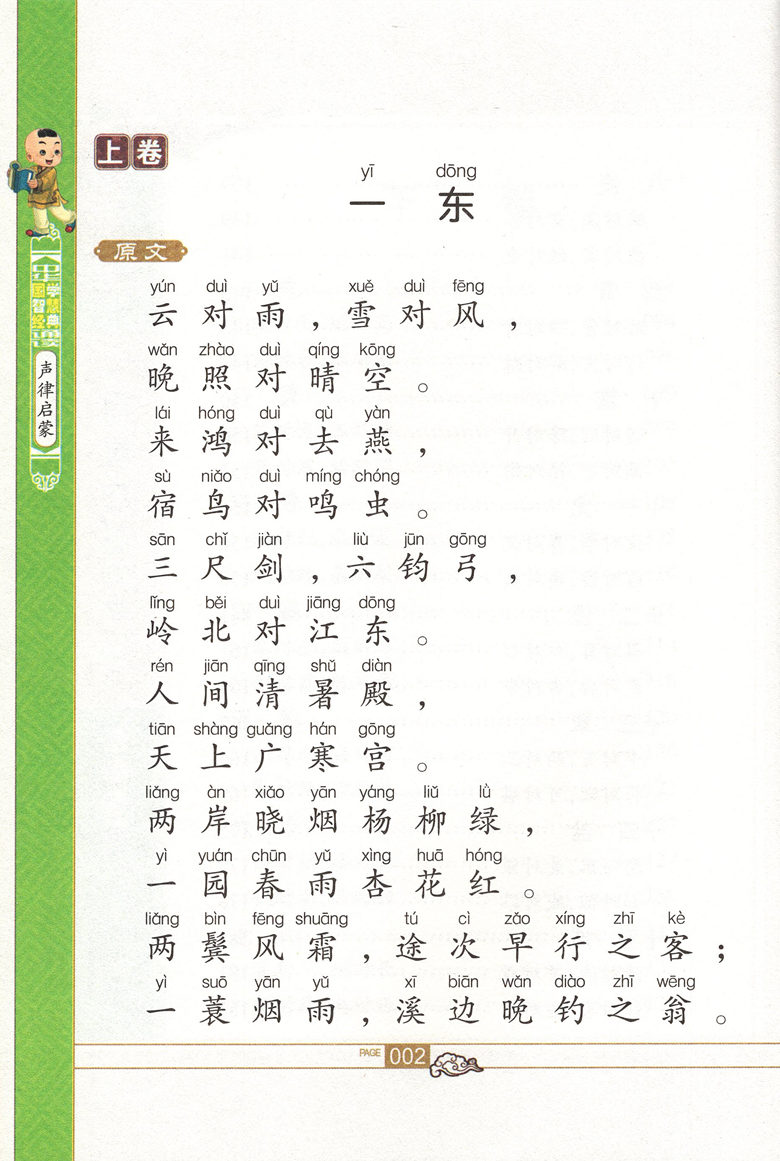 上卷
yī dōng
一 东
原文
yún duì yǔ xuě duì fēng
云对雨，雪对风，
wǎn zhào duì qíng kōng
晚照对晴空。
lái hóng duì qù yàn
来鸿对去燕，
sù niǎo duì míng chóng
宿鸟对鸣虫。
sān chǐ jiàn liù jūn gōng
三尺剑，六钧弓，
lǐng běi duì jiāng dōng
岭北对江东。
rén jiān qīng shǔ diàn
人间清暑殿，
tiān shàng guǎng hán gōng
天上广寒宫。
liǎng àn xiǎo yān yáng liǔ lǜ
两岸晓烟杨柳绿，
yì yuán chūn yǔ xìng huā hóng
一园春雨杏花红。
liǎng bìn fēng shuāng tú cì zǎo xíng zhī kè
两鬓风霜，途次早行之客；
yì suō yān yǔ xī biān wǎn diào zhī wēng
一蓑烟雨，溪边晚钓之翁。
中华国学智慧经典诵读
声律启蒙
PAGE 002